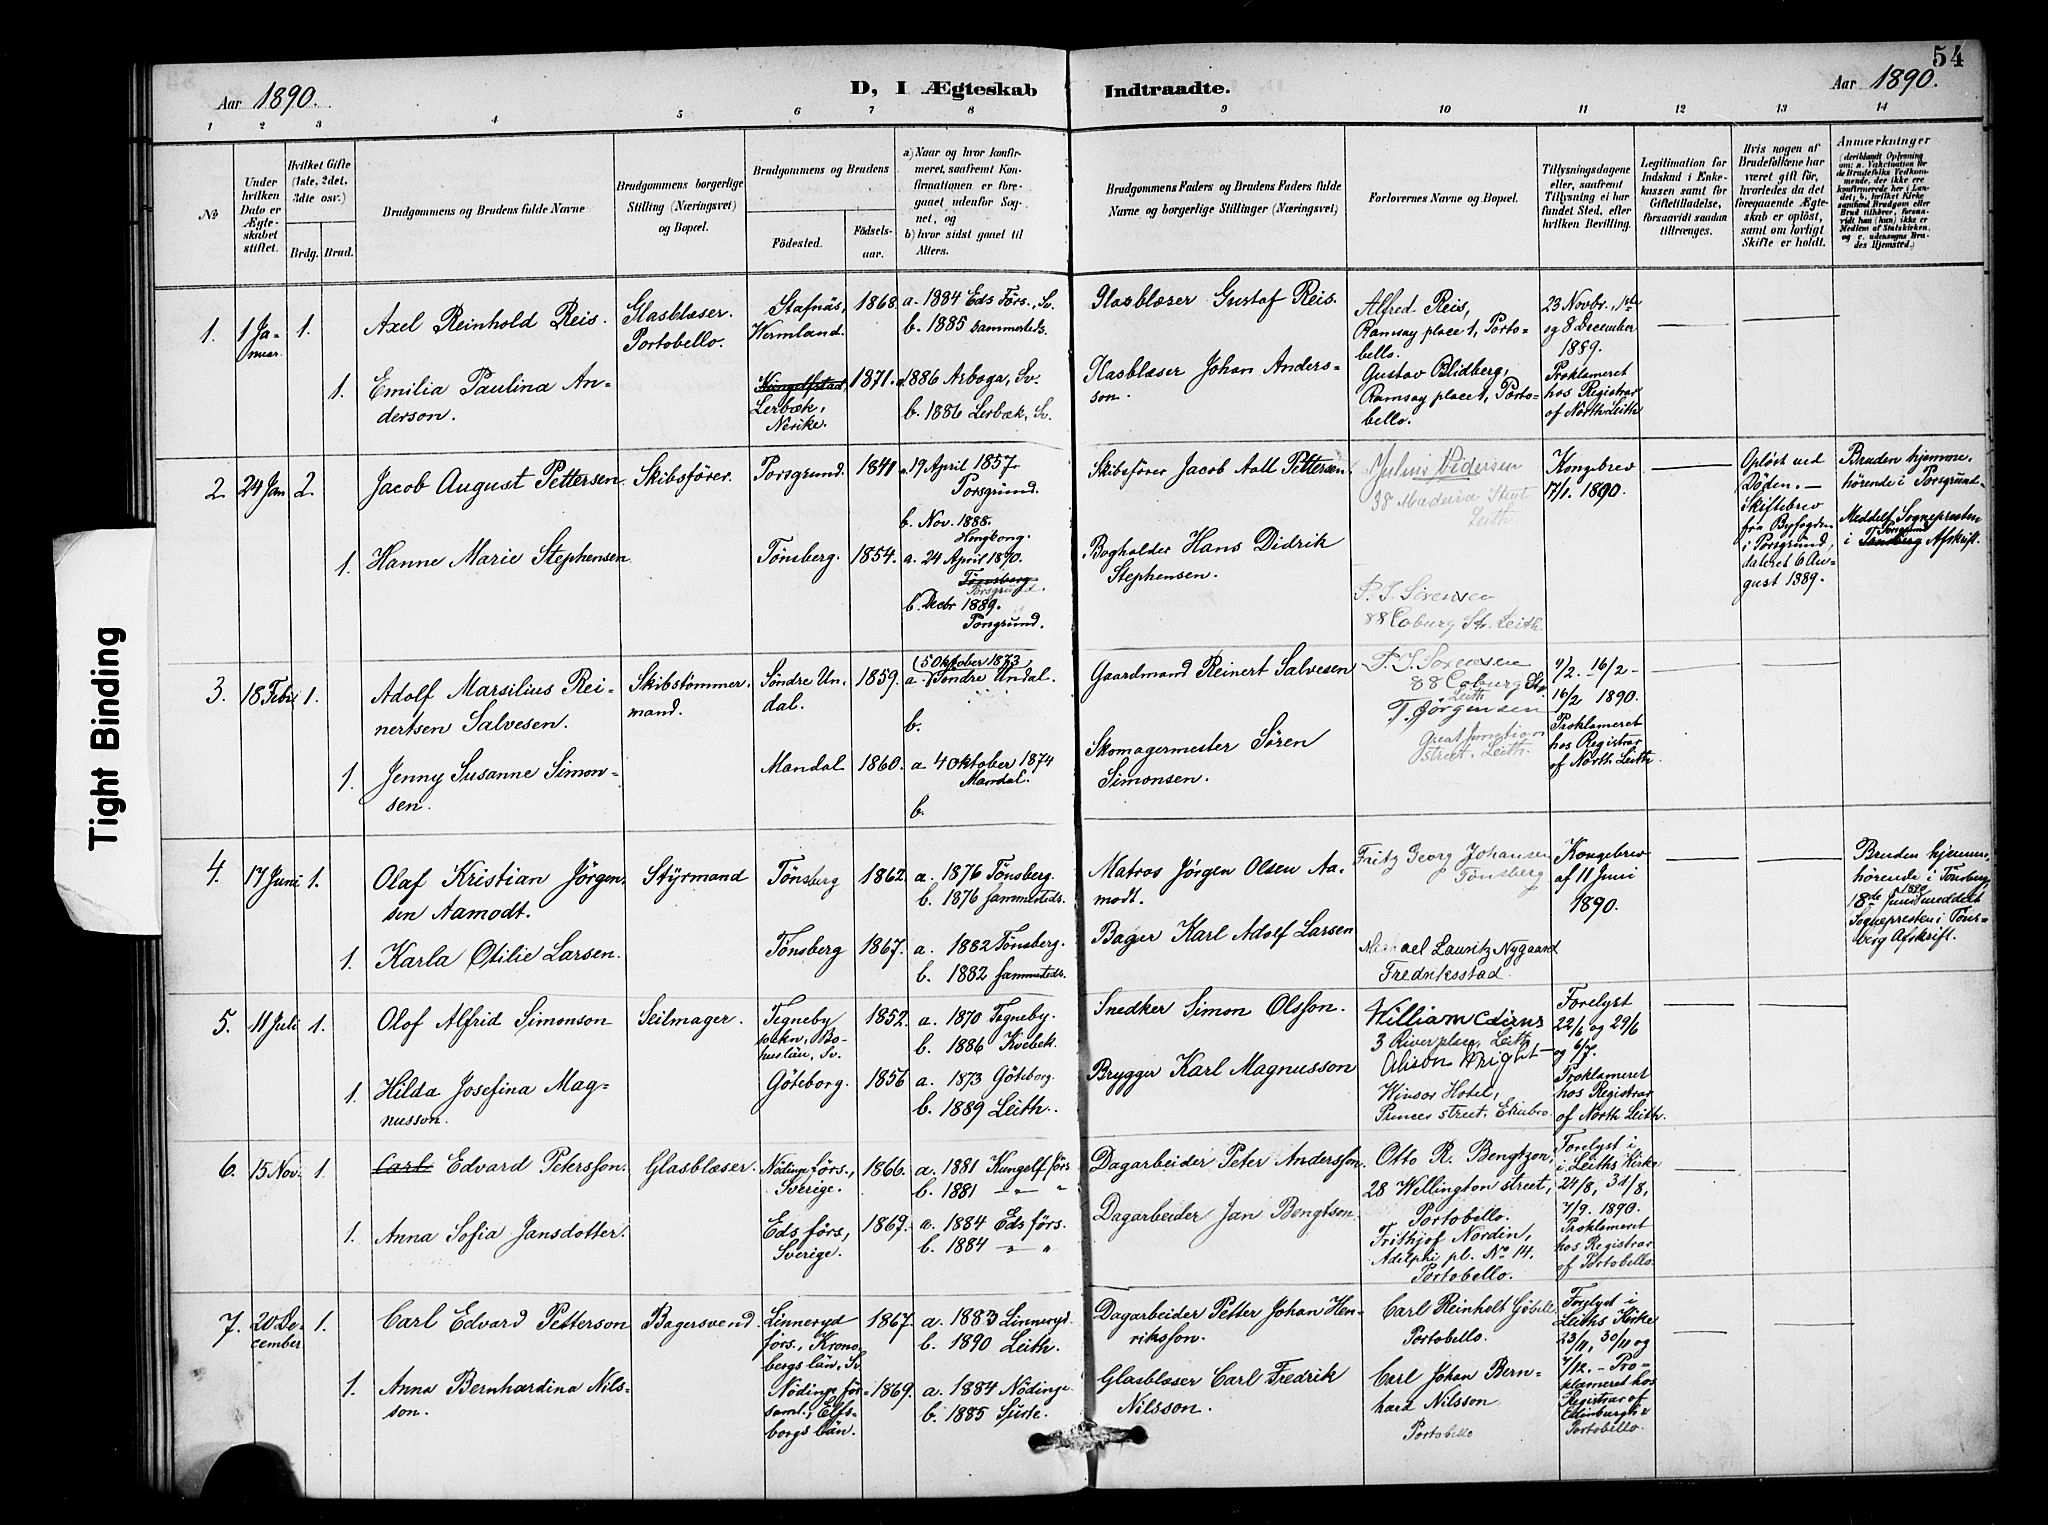 54
Aar 1890.
D, I Ægteskab
Indtraadte.
Aar 1890.
1 2 3 4 5 6 7 8 9 10 11 12 13 14
№
Under hvilken Dato er Ægteskabet stiftet.
Hvilket Gifte (1ste, 2det, 3die osv.)
Brdg. Brud.
Brudgommens og Brudens fulde Navne
Brudgommens borgerlige Stilling (Næringsvei) og Bopæl.
Brudgommens og Brudens
Fødested.
Fødselsaar.
a) Naar og hvor konfirmeret, saafremt Konfirmationen er foregaaet udenfor Sognet, og
b) hvor sidst gaaet til Alters.
Brudgommens Faders og Brudens Faders fulde Navne og borgerlige Stillinger (Næringsvei)
Forlovernes Navne og Bopæl.
Tillysningsdagene eller, saafremt Tillysning ei har fundet Sted, efter hvilken Bevilling.
Legitimation for Indskud i Enkekassen samt for Giftetilladelse, forsaavidt saadan tiltrænges.
Hvis nogen af Brudefolkene har været gift før, hvorledes da det foregaaende Ægteskab er opløst, samt om lovligt Skifte er holdt.
Anmærkninger
(deriblandt Oplysning om: a. Vakcination for de Brudefolks Vedkommende, der ikke ere konfirmerede her i Landet; b. hvilket Kirkesamfund Brudgom eller Brud tilhører, forsaavidt han (hun) ikke er Medlem af Statskirken, og c. udensogns Brudes Hjemsted.)
1. 1 Januar. 1.
Axel Reinhold Reis.
Glasblæser.
Portobello.
Stafnäs,
Wermland.
1868.
a. 1884 Eds Förs., Sv.
b. 1885 sammesteds.
Glasblæser Gustaf Reis.
Alfred Reis,
Ramsay place 1, Porto-
bello.
23 Novbr., 1ste
og 8 December
1889.
1. Emilia Paulina An-
derson.
Kungelfstad,
Lerbæk,
Nerike.
1871.
a. 1886 Arboga, Sv.
b. 1886 Lerbæk, Sv.
Glasblæser Johan Anders-
son.
Gustav Blidberg,
Ramsay place 1, Porto-
bello.
Proklameret
hos Registrar
of North Leith
2. 24 Jan. 2.
Jacob August Pettersen.
Skibsfører.
Porsgrund.
1841
a. 19 April 1857
Porsgrund.
b. Nov. 1888.
Hongkong.
Skibsfører Jacob Aall Pettersen.
Julius Pedersen
38 Madeira Street
Leith
Kongebrev
17/1. 1890.
Opløst ved
Døden. —
Skiftebrev
fra Byfogden
i Porsgrund,
dateret 6 Au-
gust 1889.
Bruden hjemme-
hørende i Porsgrund.
Meddelt Sognepresten
i Tønsberg Porsgrund Afskrift.
1. Hanne Marie Stephensen
Tønsberg.
1854.
a. 24 April 1870.
Tønsberg.
Porsgrund.
b. Decbr 1889.
Porsgrund.
Bogholder Hans Didrik
Stephensen.
P. S. Sörensen
88 Coburg Str. Leith.
3. 18 Febr. 1.
Adolf Marsilius Rei-
nertsen Salvesen.
Skibstømmer-
mand.
Søndre Un-
dal.
1859.
(5 Oktober 1873
a. Søndre Undal.
b.
Gaardmand Reinert Salvesen
P. S. Sorensen
88 Coburg Str.
Leith
9/2. 16/2 -
16/2 1890.
Proklameret
hos Registrar
of North Leith.
1. Jenny Susanne Simon-
sen.
Mandal
1860.
a. 4 Oktober 1874
Mandal.
b.
Skomagermester Søren
Simonsen.
T. Jørgensen
Great Junction
street. Leith.
4. 17 Juni 1.
Olaf Kristian Jørgen-
sen Aamodt.
Styrmand
Tönsberg
1862
a. 1876 Tönsberg.
b. 1876 sammesteds.
Matros Jørgen Olsen Aa-
modt.
Fritz Georg Johansen
Tønsberg
Kongebrev
af 11 Juni
1890.
Bruden hjemme-
hørende i Tønsberg.
18de Juni 1890 meddelt
Sognepresten i Tøns-
berg Afskrift.
1. Karla Otilie Larsen.
Tønsberg
1867.
a. 1882 Tønsberg.
b. 1882 sammesteds.
Bager Karl Adolf Larsen
Michael Lauritz Nygaard
Fredriksstad.
5. 11 Juli 1.
Olof Alfrid Simonson
Seilmager.
Tegneby
sokn, Bo-
huslän, Sv.
1852.
a. 1870 Tegneby.
b. 1886 Kvebek.
Snedker Simon Olsson.
William Cairns
3 River place, Leith
Forelyst
22/6 og 29/6
og 6/7.
1. Hilda Josefina Mag-
nusson.
Göteborg.
1856
a. 1873 Göteborg.
b. 1889 Leith.
Brygger Karl Magnusson
Alison Wright
Winsor Hotel,
Princes street. Edinbro.
Proklameret
hos Registrar
of North Leith.
6. 15 Nov. 1.
Carl Edvard Petersson.
Glasblæser.
Nödinge förs.,
Sverige.
1866.
a. 1881 Kungelf förs
b. 1881 — „ — „
Dagarbeider Peter Andersson.
Otto R. Bengtzon,
28 Wellington street,
Portobello.
Forelyst i
i Leiths Kirke
24/8, 31/8,
7/9. 1890.
1. Anna Sofia Jansdotter.
Eds förs.,
Sverige.
1869.
a. 1884 Eds förs.
b. 1884 „ „
Dagarbeider Jan Bengtson.
Frithjof Nordin,
Adelphi pl. No 14.
Portobello.
Proklameret
hos Registrar
of Portobello.
7. 20 De-
cember 1.
Carl Edvard Petterson
Bagersvend.
Linneryd
förs., Krono-
bergs län, Sv.
1867.
a. 1883 Linneryd
b. 1890 Leith.
Dagarbeider Petter Johan Hen-
riksson.
Carl Reinholt Göbel.
Portobello.
Forelyst i
Leiths Kirke
23/11, 30/11 og
7/12. - Pro-
klameret hos
Registrar of
Edinburgh &
Portobello.
1. Anna Bernhardina Nils-
son.
Nödinge för-
saml., Elfs-
borgs län.
1869.
a. 1884 Nödinge
b. 1885 Surte.
Glasblæser Carl Fredrik
Nilsson.
Carl Johan Bern-
hard Nilsson
Portobello
Tight Binding